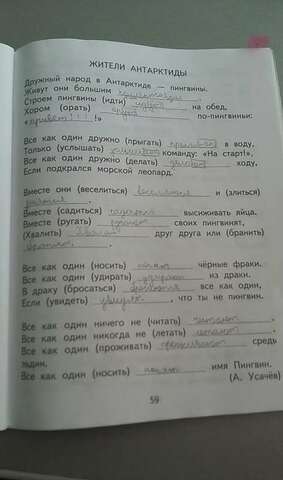 ЖИТЕЛИ АНТАРКТИДЫ
Дружный народ в Антарктиде — пингвины.
Живут они большим
Строем пингвины (идти) идут на обед,
Хором (орать) орут по-пингвиньи:
«привет!!!!»
Все как один дружно (прыгать) прыгают в воду,
Только (услышать) команду: «На старт!»,
Все как один дружно (делать) делают ходу,
Если подкрался морской леопард.
Вместе они (веселиться) веселятся и (злиться)
Вместе (садиться) садятся высиживать яйца.
Вместе (ругать) ругают своих пингвинят,
(Хвалить) друг друга или (бранить)
Все как один (носить) носят чёрные фраки.
Все как один (удирать) удирают из драки.
В драку (бросаться) бросаются все как один,
Если (увидеть) увидят, что ты не пингвин.
Все как один ничего не (читать) читают
Все как один никогда не (летать) летают.
Все как один (проживать) проживают средь
льдин.
Все как один (носить) носят имя Пингвин.
(А. Усачёв)
59